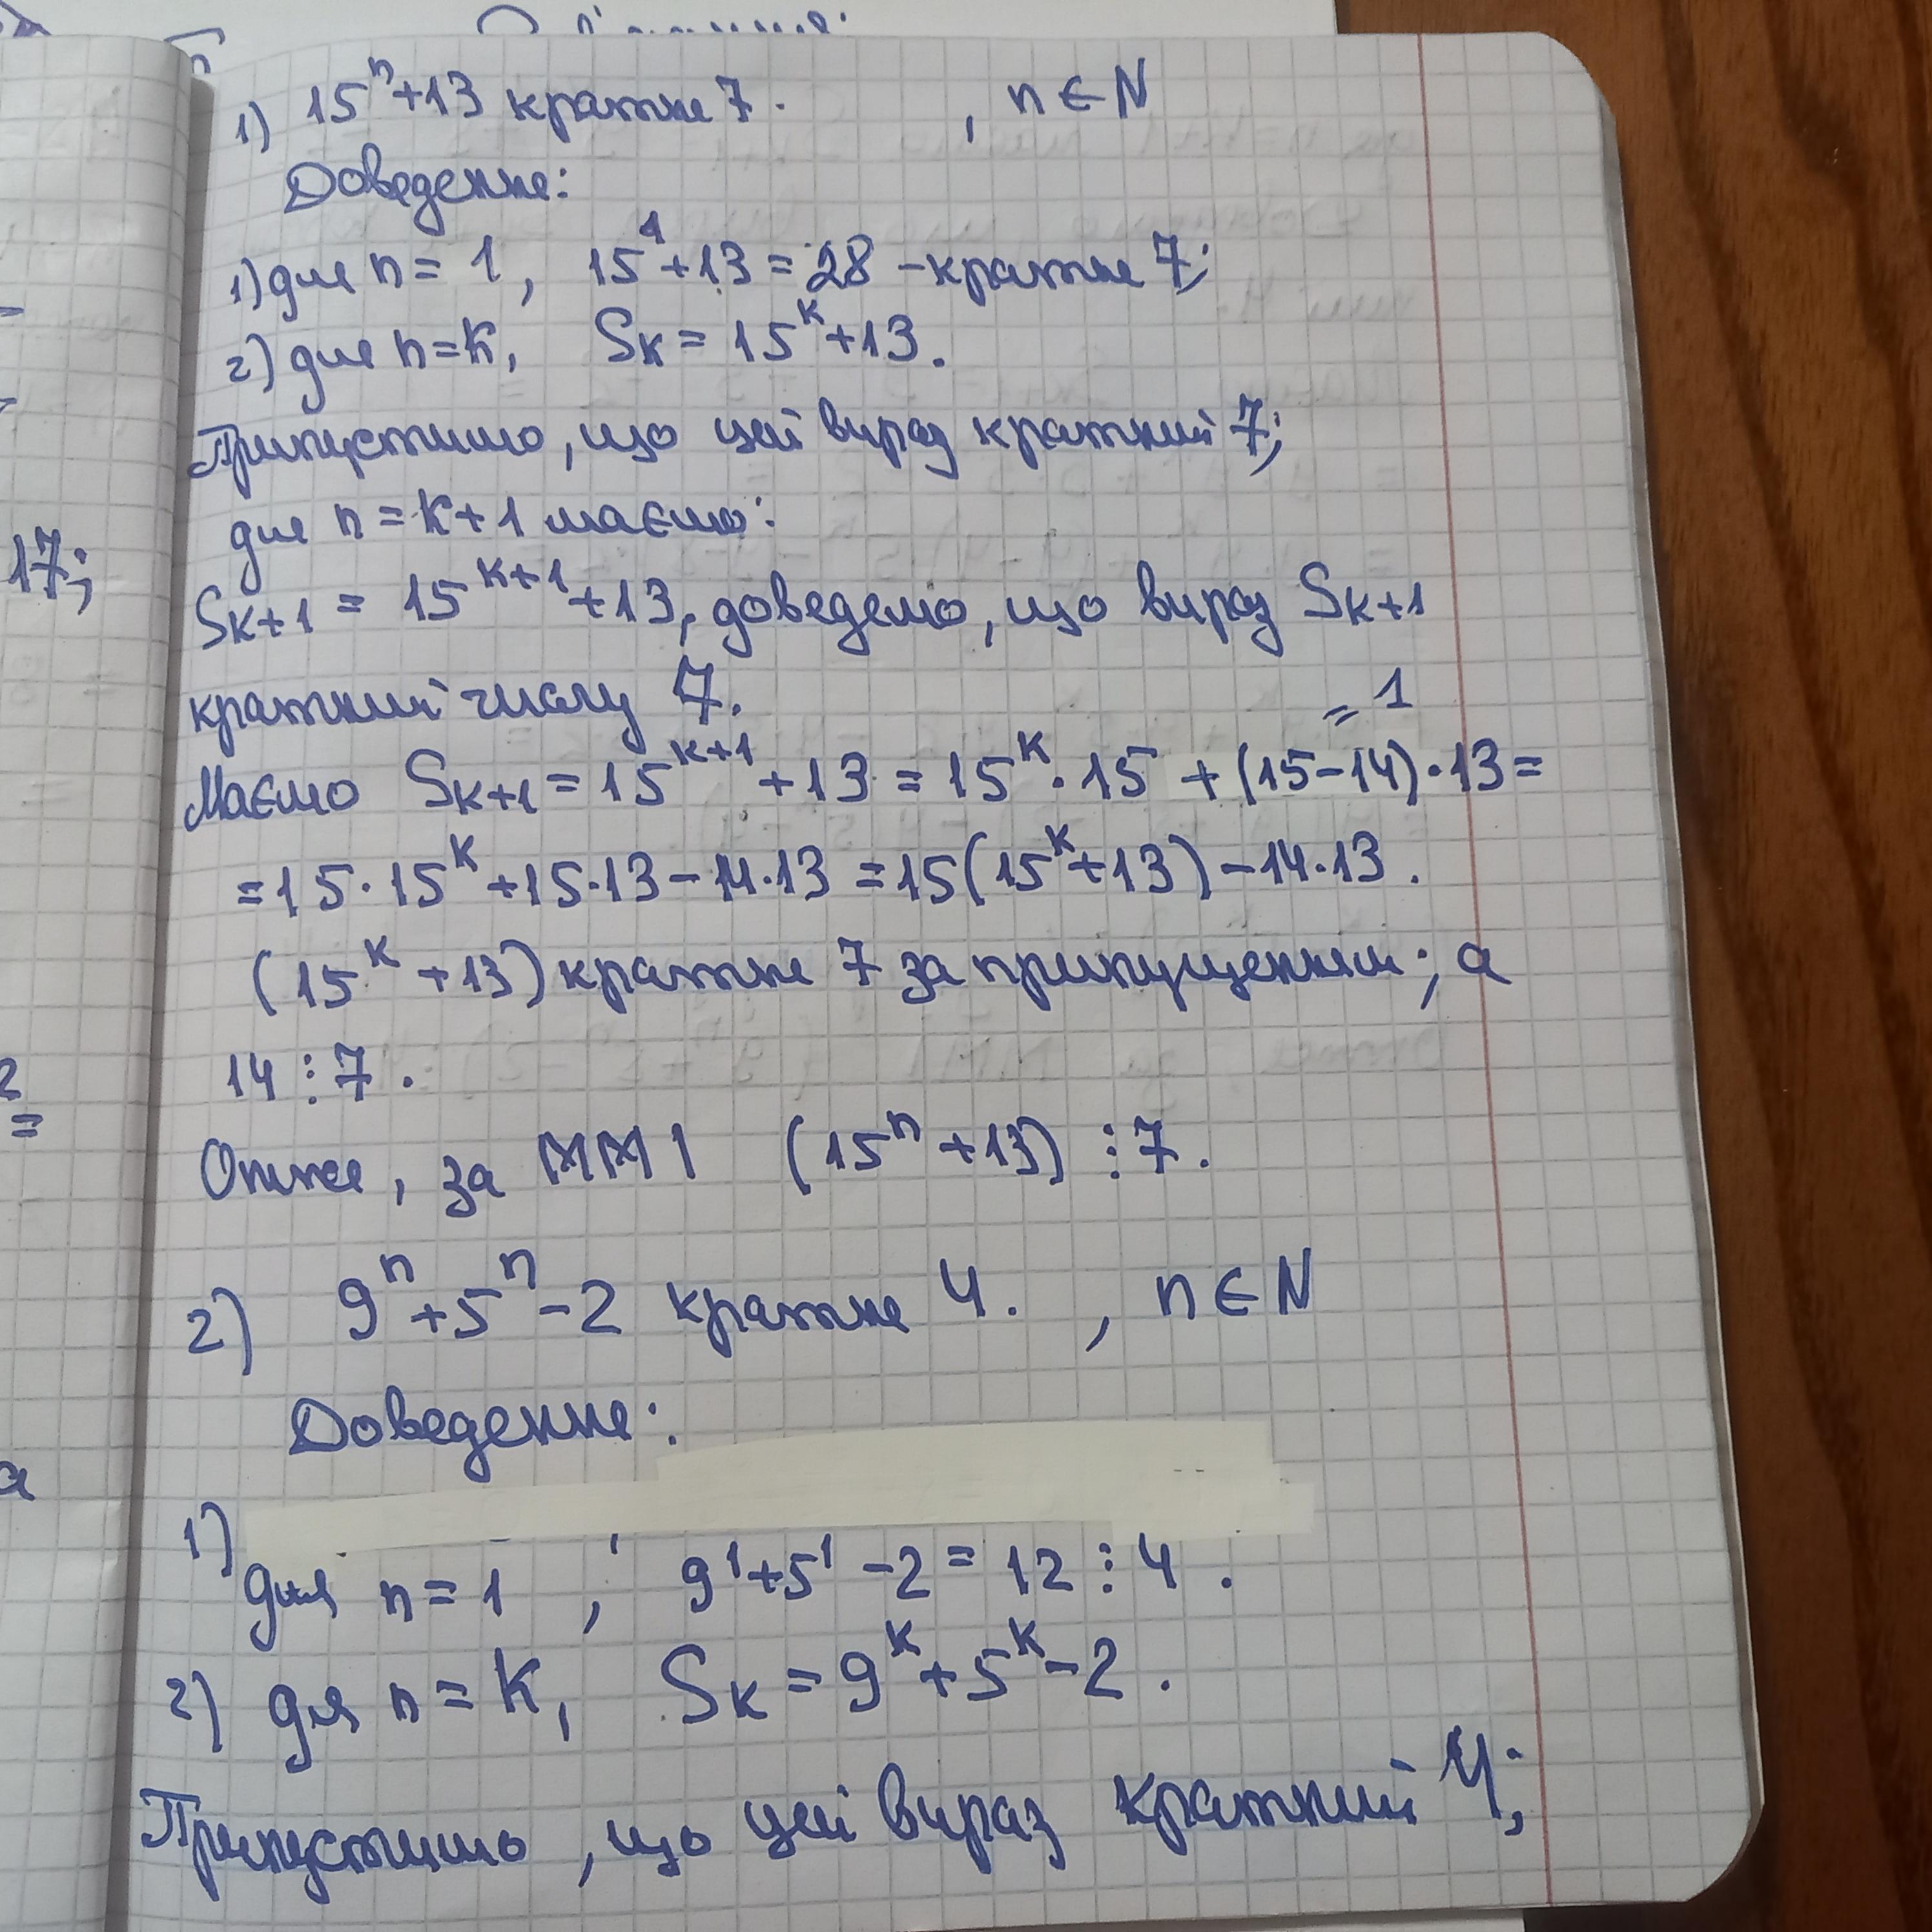 1) 15ⁿ+13 кратне 7. , n ∈ N
Доведення:
1) для n = 1, 15¹+13 = 28 – кратне 7;
2) для n=k, Sk = 15ᵏ+13.
Припустимо, що цей вираз кратний 7;
для n = k+1 маємо:
Sk+1 = 15ᵏ⁺¹+13, доведемо, що вираз Sk+1
кратний числу 7.
= 1
Маємо Sk+1 = 15ᵏ⁺¹ + 13 = 15ᵏ · 15 + (15-14)·13 =
= 15·15ᵏ+15·13-14·13 = 15(15ᵏ+13)-14·13.
(15ᵏ +13) кратне 7 за припущенням; а
14 ⋮ 7.
Отже, за ММІ (15ⁿ +13) ⋮ 7.
2) 9ⁿ+5ⁿ-2 кратне 4. , n ∈ N
Доведення:
1)
для n = 1 , 9¹+5¹ -2 = 12 ⋮ 4.
2) для n = k, Sk = 9ᵏ+5ᵏ-2.
Припустимо, що цей вираз кратний 4;
17;
2
=
а